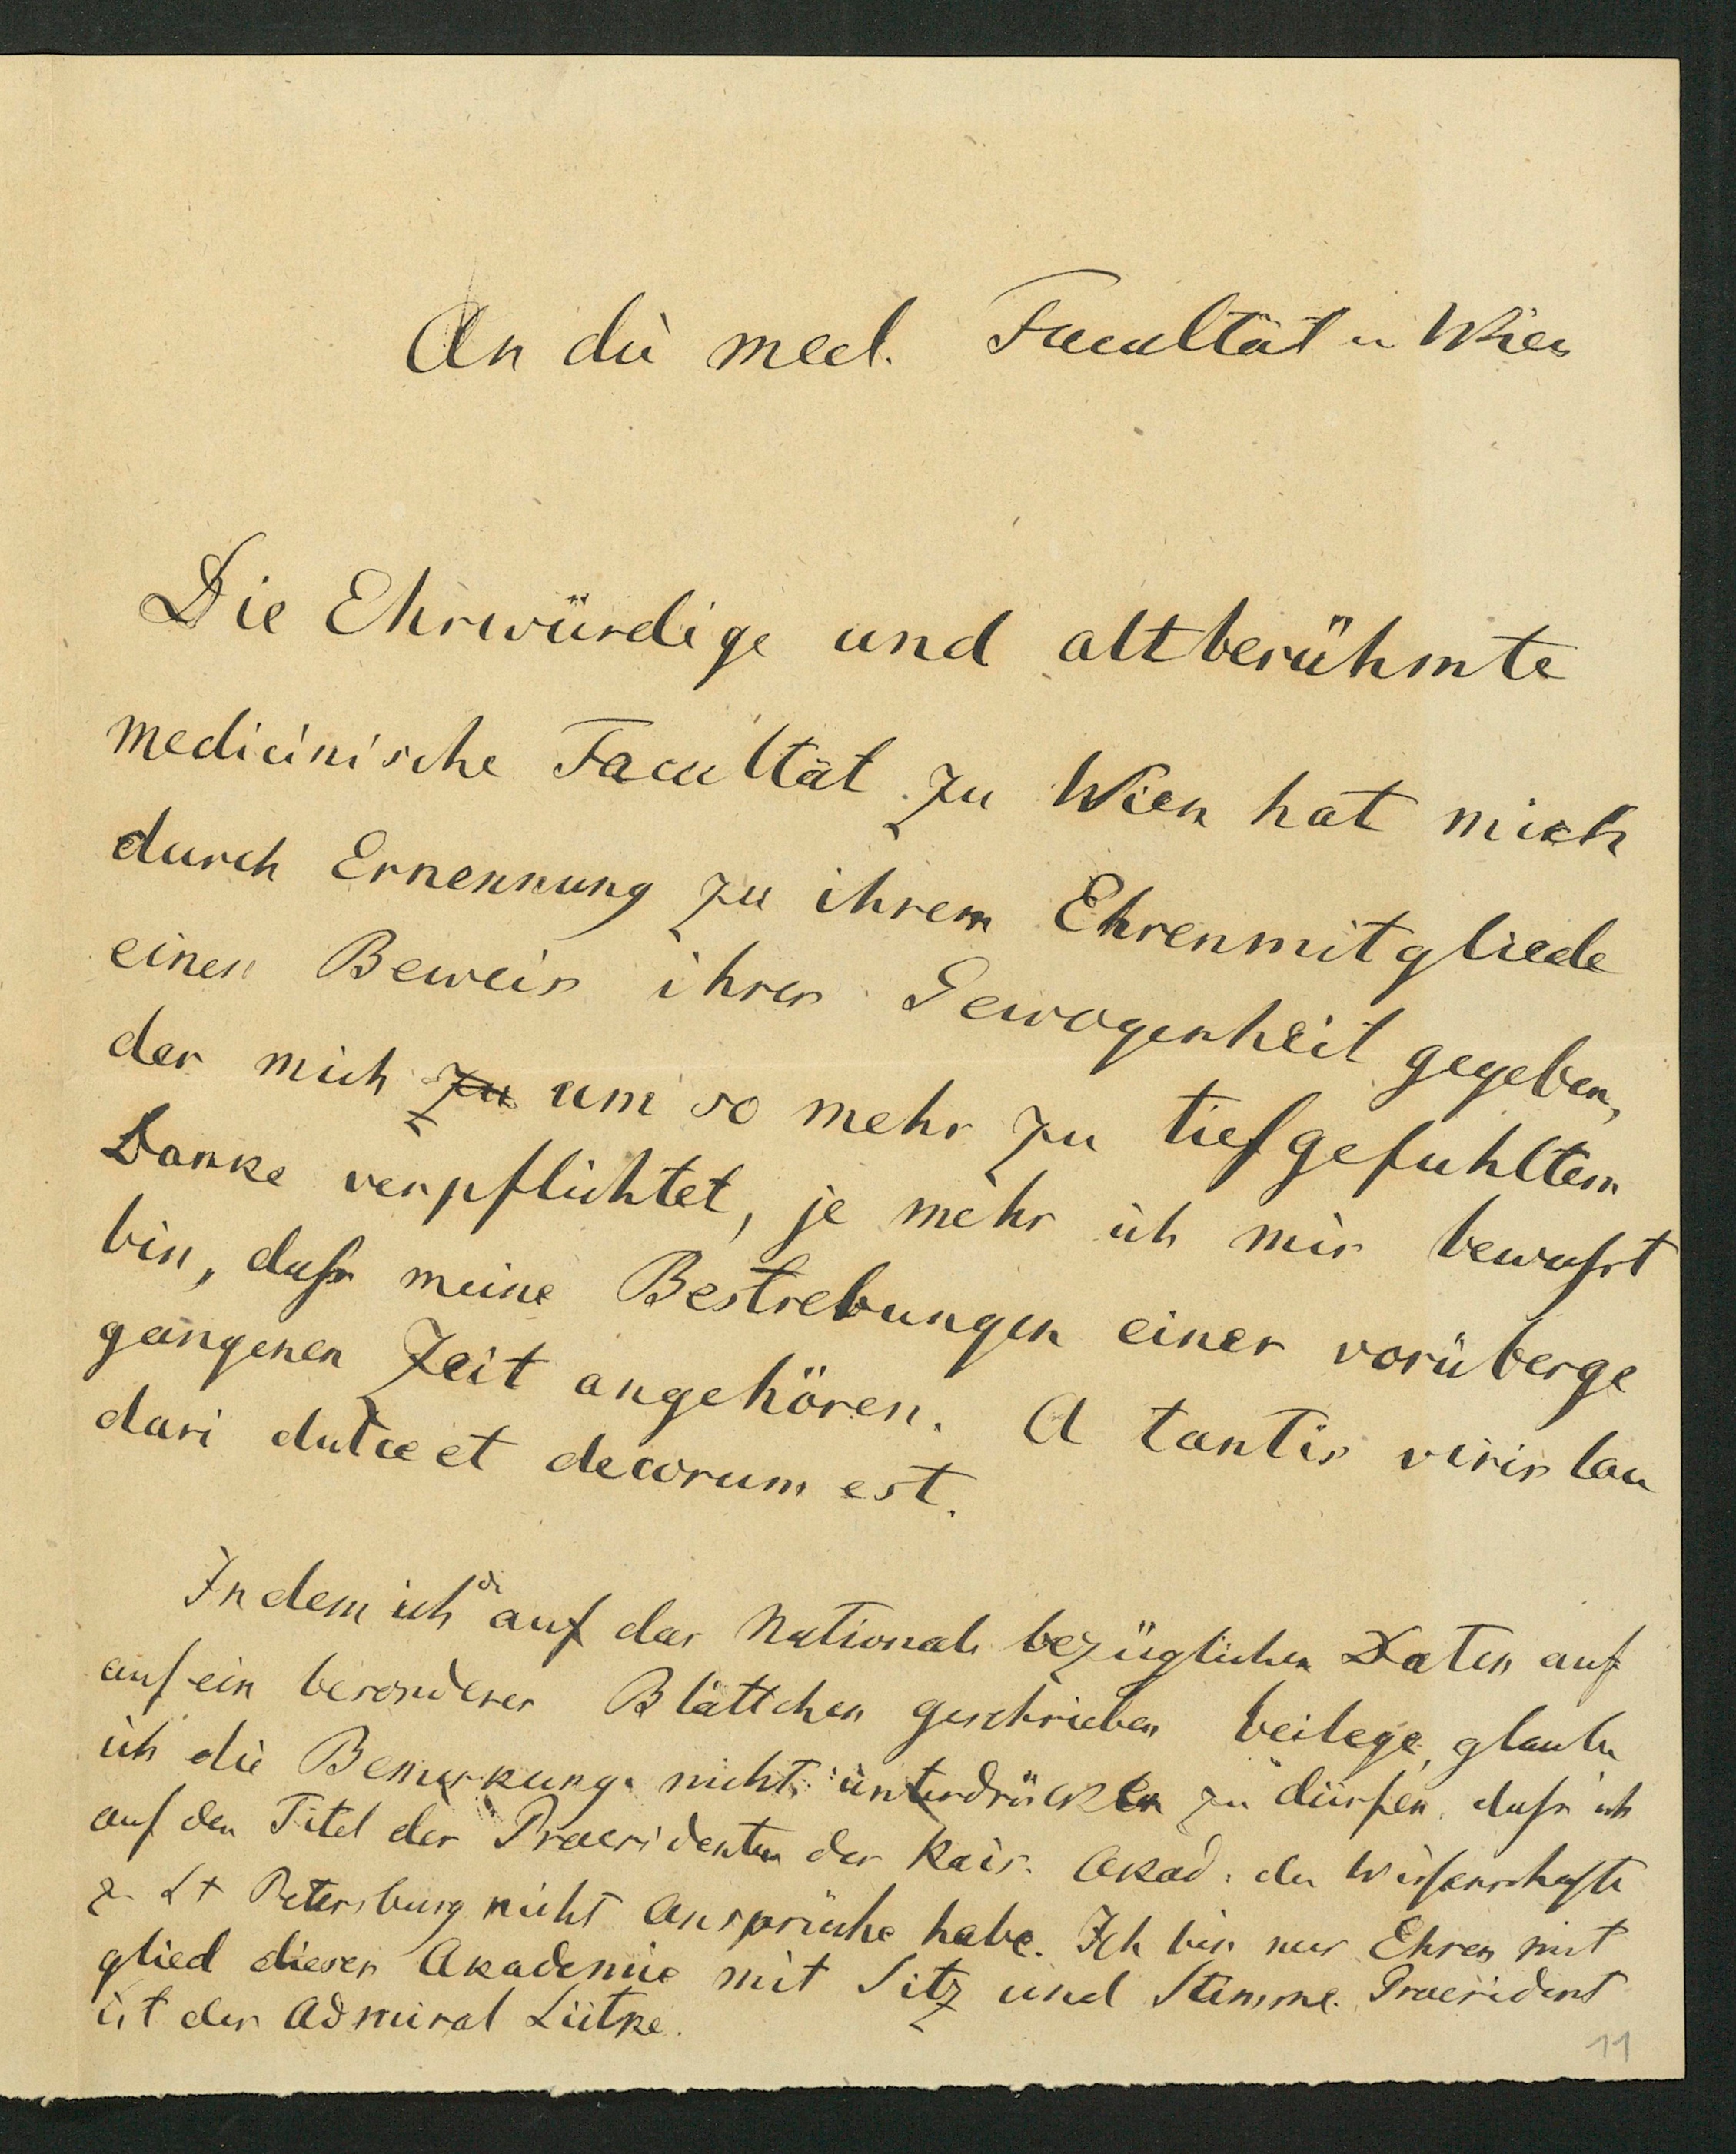 An die med. Facultät in Wien
Die Ehrwürdige und altberühmte
medicinische Facultät zu Wien hat mich
durch Ernennung zu ihrem Ehrenmitgliede
einen Beweis ihrer Gewogenheit gegeben,
der mich zu um so mehr zu tiefgefuhltem
Danke verpflichtet, je mehr ich mir bewusst
bin, dass meine Bestrebungen einer vorüberge
gangenen Zeit angehören. A tantis viris lau
dari dulce et decorum est.
Indem ich auf das Nationale bezüglichen Daten auf
auf ein besonderes Blättchen geschrieben beilege, glaube
ich die Bemerkung nicht unterdrücken zu dürfen, dass ich
auf den Titel des Praesidenten der Kais. Akad. der Wissenschaften
zu St Petersburg nicht Ansprüche habe. Ich bin nur Ehren mit
glied dieser Akademie mit Sitz und Stimme. Praesident
ist der Admiral Lütke.
11